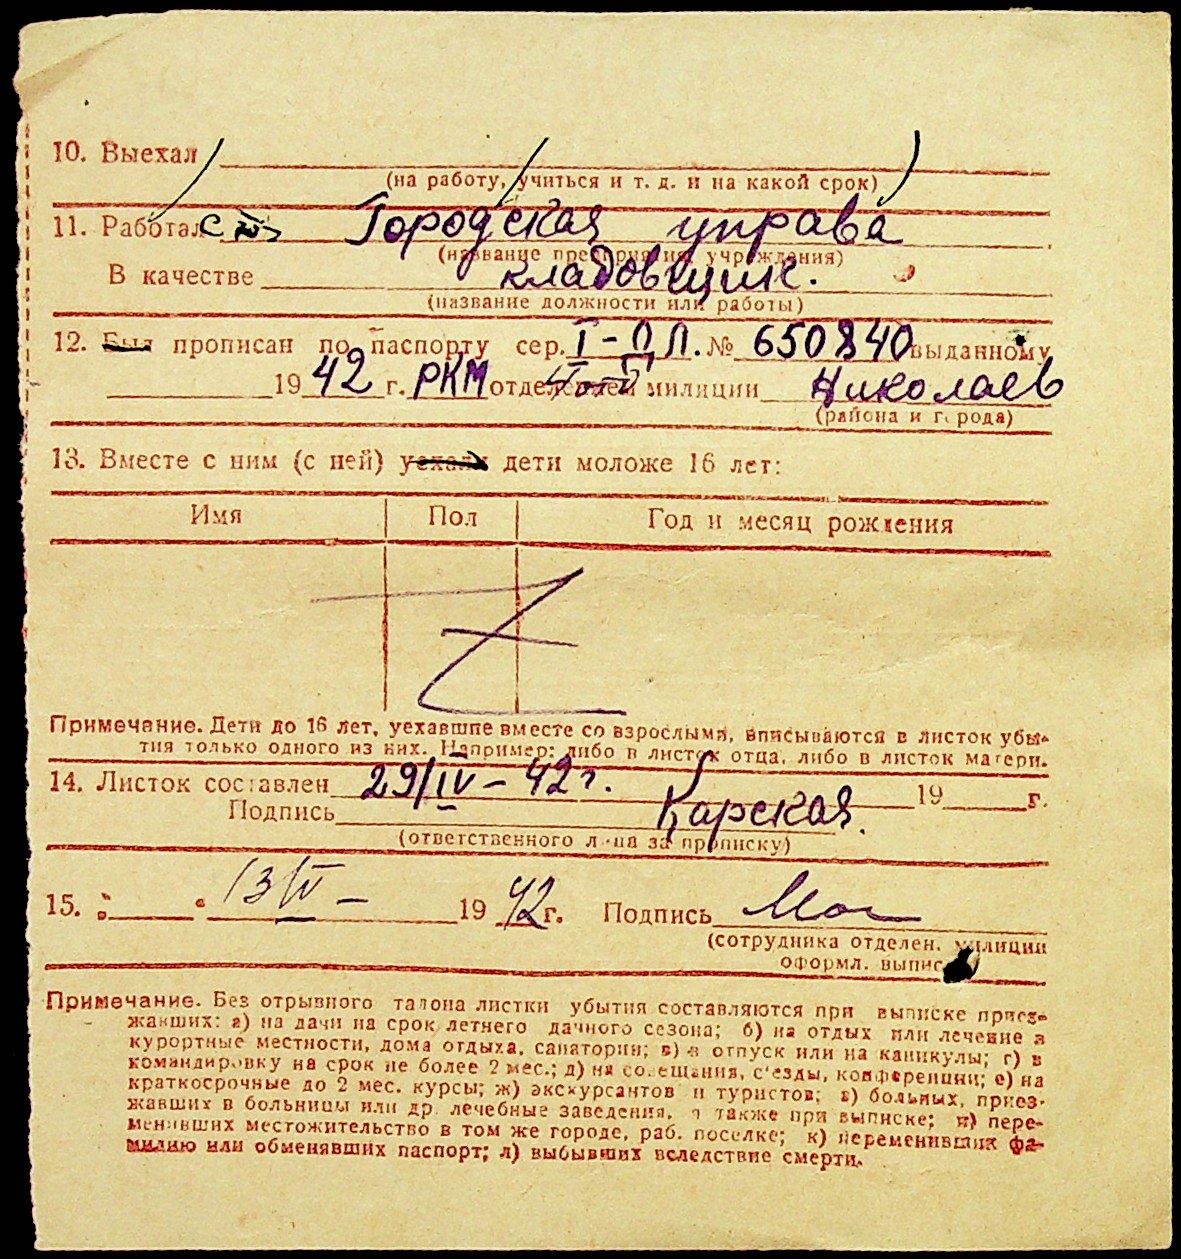 10. Выехал
(на работу, учиться и т. д. и на какой срок)
11. Работал Городская управа
(название предприятия, учреждения)
В качестве кладовщик.
(название должности или работы)
12. Был прописан по паспорту сер. I-ЦЛ. № 650840 выданному
1942 г. РКМ отделением милиции Николаев
(района и города)
13. Вместе с ним (с ней) уехали дети моложе 16 лет:
Имя Пол Год и месяц рождения
Примечание. Дети до 16 лет, уехавшие вместе со взрослыми, вписываются в листок убы-
тия только одного из них. Например: либо в листок отца, либо в листок матери.
14. Листок составлен 29/IV-42 г. 19 г.
Подпись Карская.
(ответственного лица за прописку)
15. 13/IV - 1942 г. Подпись
(сотрудника отделен. милиции
оформл. выпис
Примечание. Без отрывного талона листки убытия составляются при выписке приез-
жавших: а) на дачи на срок летнего дачного сезона; б) на отдых или лечение в
курортные местности, дома отдыха, санатории; в) в отпуск или на каникулы; г) в
командировку на срок не более 2 мес.; д) на совещания, с'езды, конференции; е) на
краткосрочные до 2 мес. курсы; ж) экскурсантов и туристов; з) больных, приез-
жавших в больницы или др. лечебные заведения, а также при выписке; и) пере-
менивших местожительство в том же городе, раб. поселке; к) переменивших фа-
милию или обменявших паспорт; л) выбывших вследствие смерти.